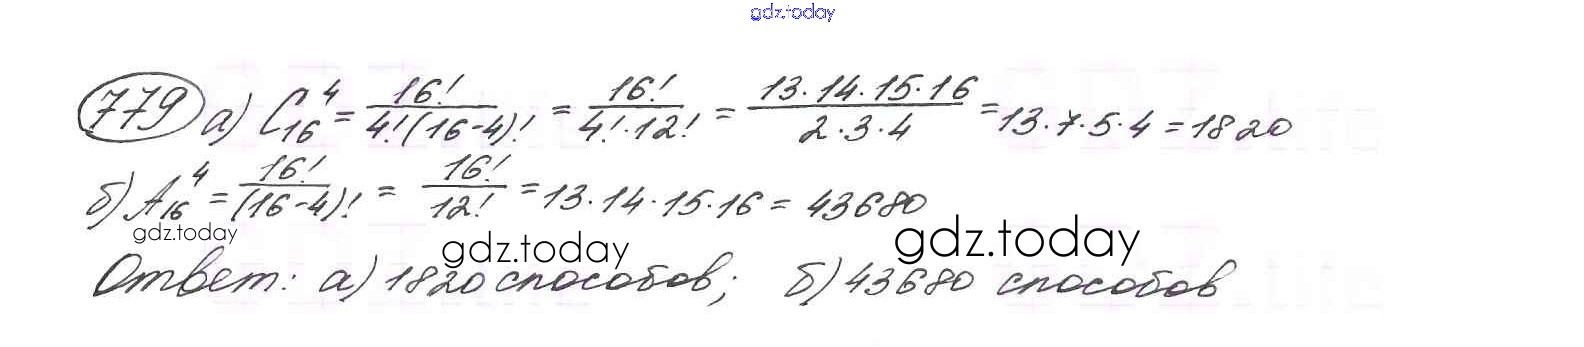 gdz.today
779 а) C₁₆⁴ = 16!/(4!(16-4)!) = 16!/(4!·12!) = (13·14·15·16)/(2·3·4) = 13·7·5·4 = 1820
б) A₁₆⁴ = 16!/(16-4)! = 16!/12! = 13·14·15·16 = 43680
gdz.today gdz.today gdz.today
Ответ: а) 1820 способов; б) 43680 способов